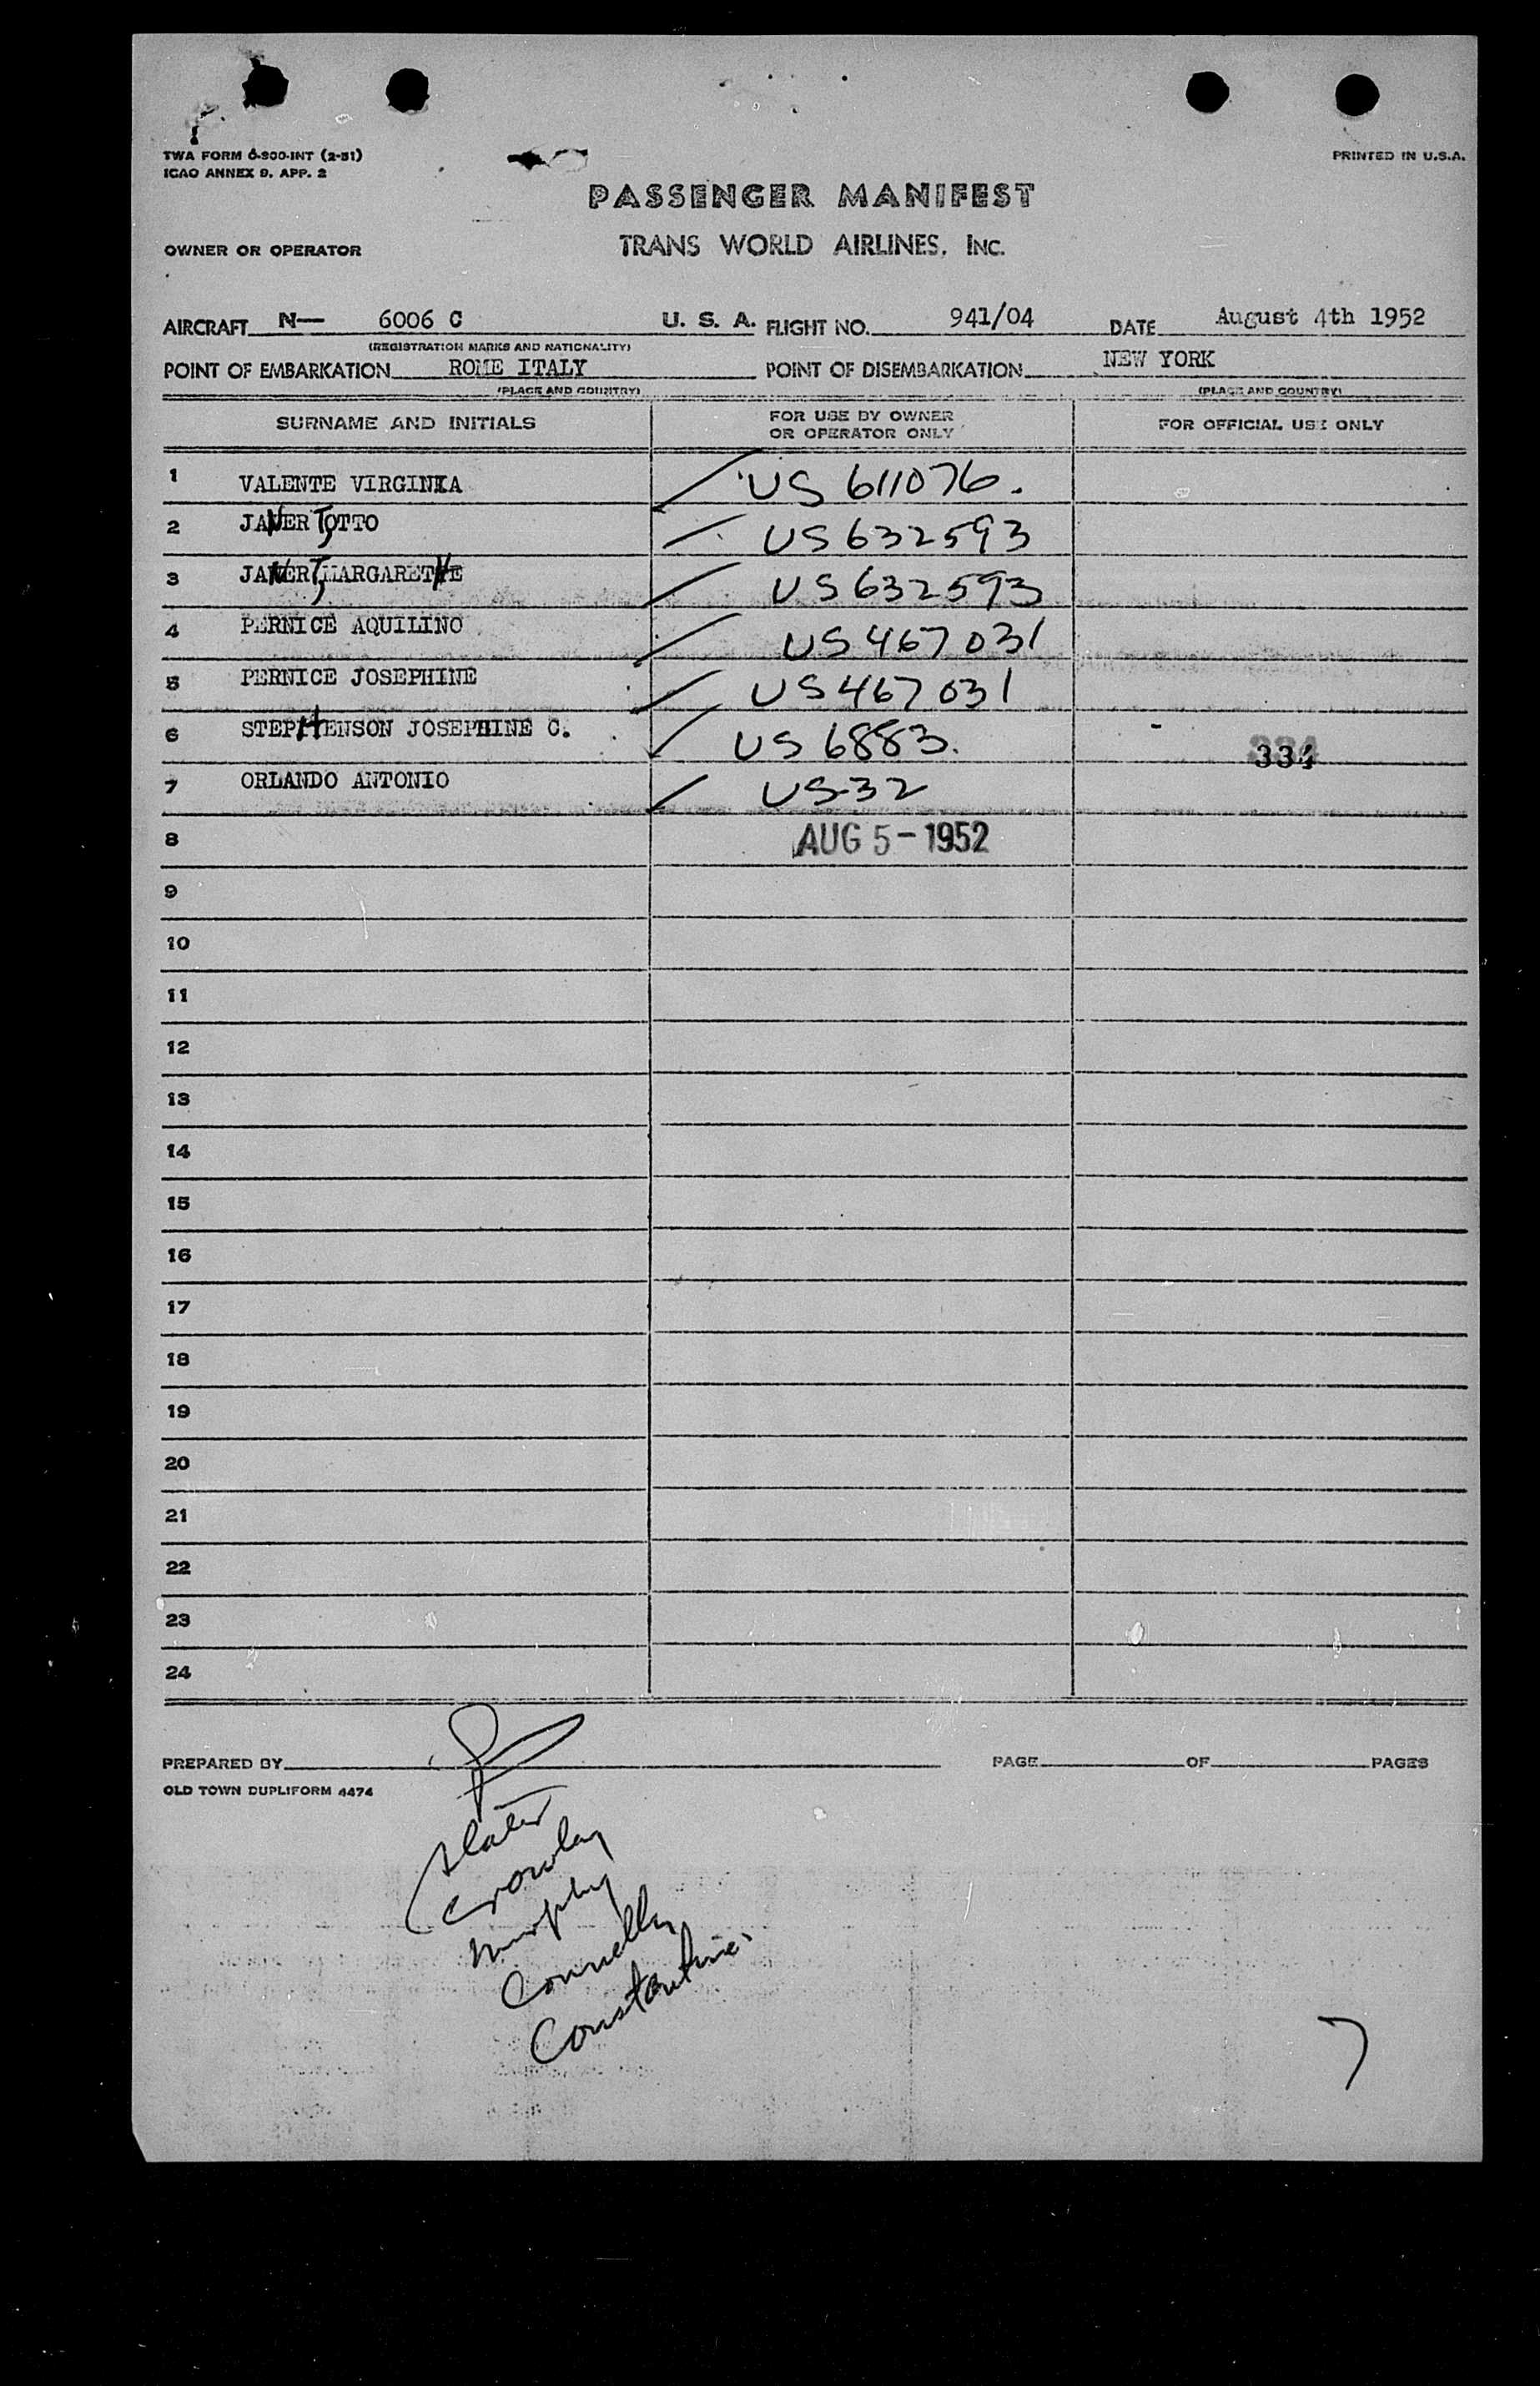 TWA FORM 6-900-INT (2-51)
ICAO ANNEX 9. APP. 2
PRINTED IN U.S.A.
PASSENGER MANIFEST
OWNER OR OPERATOR TRANS WORLD AIRLINES, INC.
AIRCRAFT N— 6006 C U. S. A. FLIGHT NO. 941/04 DATE August 4th 1952
(REGISTRATION MARKS AND NATIONALITY)
POINT OF EMBARKATION ROME ITALY POINT OF DISEMBARKATION NEW YORK
(PLACE AND COUNTRY) (PLACE AND COUNTRY)
SURNAME AND INITIALS FOR USE BY OWNER OR OPERATOR ONLY FOR OFFICIAL USE ONLY
1 VALENTE VIRGINIA US 611076.
2 JANERT, OTTO US 632593
3 JANERT, MARGARETHE US 632593
4 PERNICE AQUILINO US 467031
5 PERNICE JOSEPHINE US 467031
6 STEPHENSON JOSEPHINE C. US 6883. 334
7 ORLANDO ANTONIO US 32
8 AUG 5 - 1952
9
10
11
12
13
14
15
16
17
18
19
20
21
22
23
24
PREPARED BY PAGE OF PAGES
OLD TOWN DUPLIFORM 4474
Slater
Crowley
Murphy
Connelly
Constantine
7